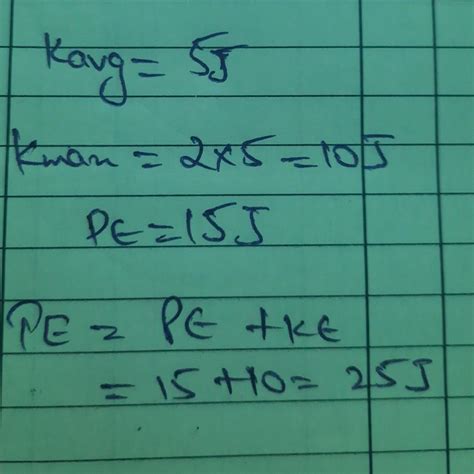 Kavg = 5J
Kmax = 2x5 = 10J
PE = 15J
TE = PE + KE
= 15 + 10 = 25J